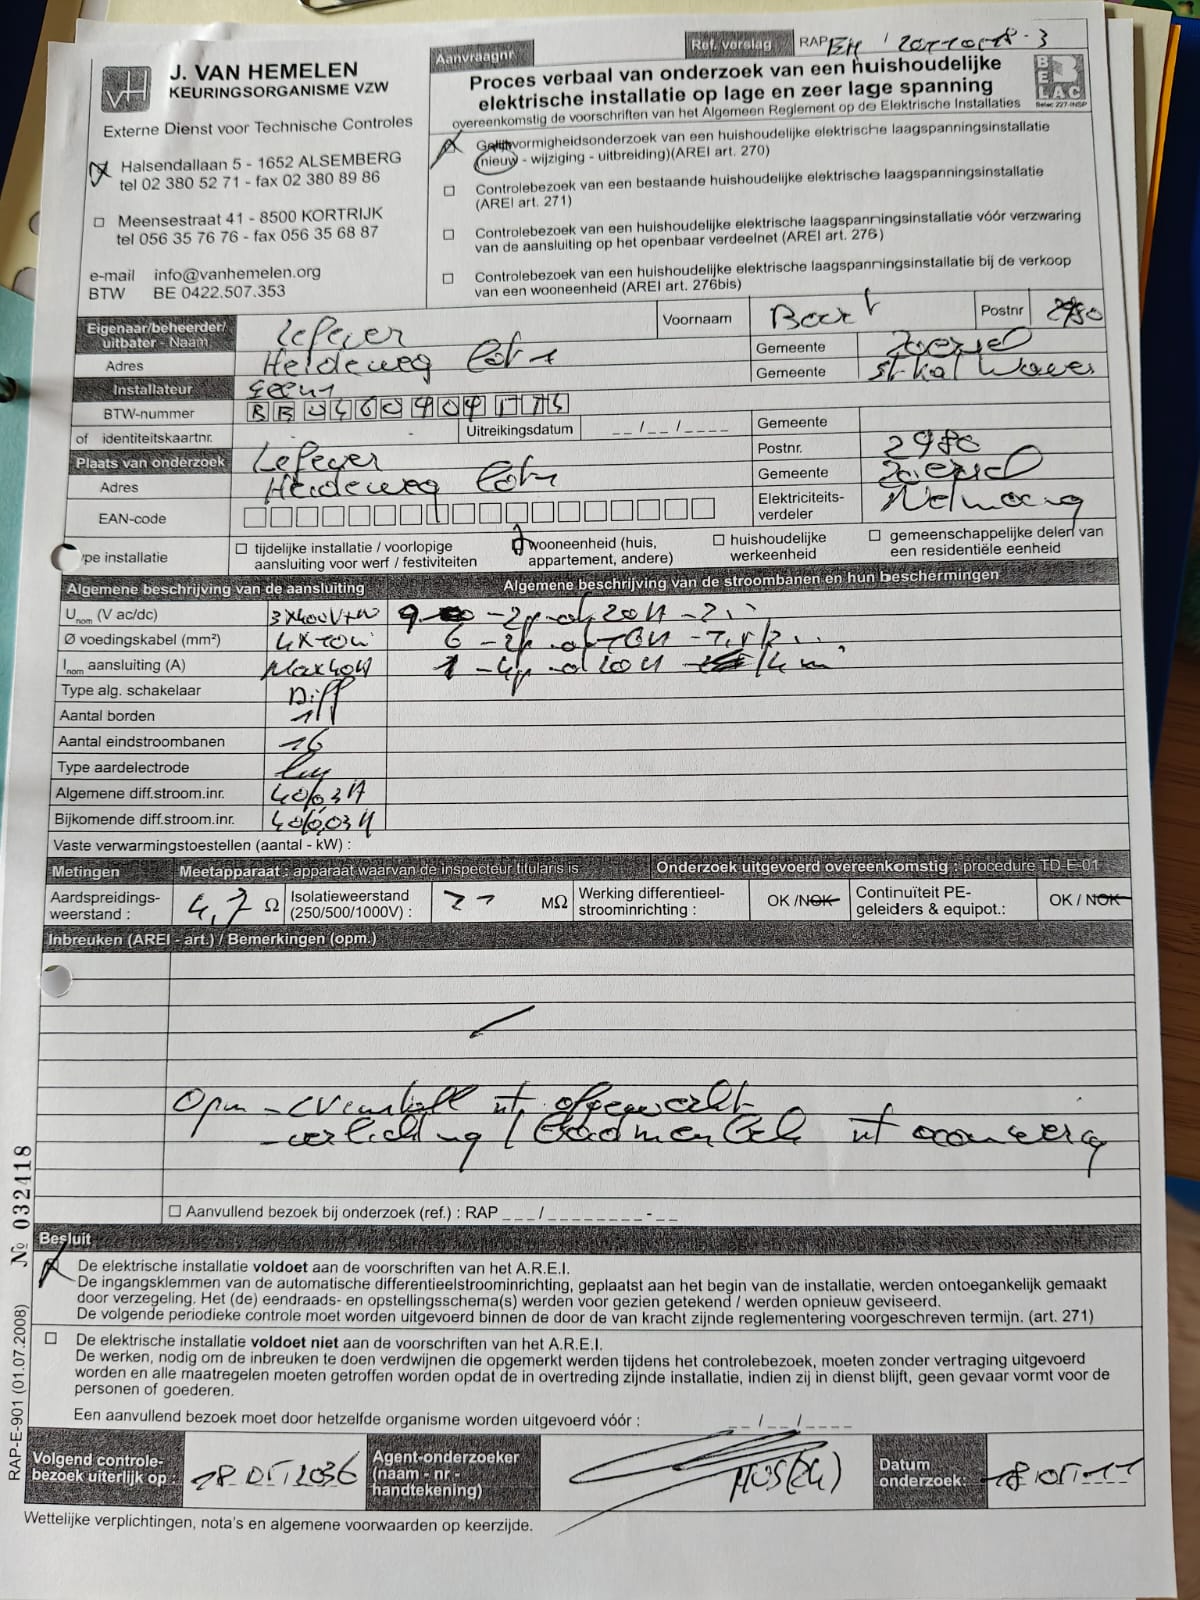 Ref. verslag RAP EH / 20110518-3
J. VAN HEMELEN
KEURINGSORGANISME VZW
Externe Dienst voor Technische Controles
Halsendallaan 5 - 1652 ALSEMBERG
tel 02 380 52 71 - fax 02 380 89 86
Meensestraat 41 - 8500 KORTRIJK
tel 056 35 76 76 - fax 056 35 68 87
e-mail info@vanhemelen.org
BTW BE 0422.507.353
Aanvraagnr
Proces verbaal van onderzoek van een huishoudelijke
elektrische installatie op lage en zeer lage spanning
overeenkomstig de voorschriften van het Algemeen Reglement op de Elektrische Installaties
BELAC
Belac 227-INSP
Gelijkvormigheidsonderzoek van een huishoudelijke elektrische laagspanningsinstallatie
(nieuw - wijziging - uitbreiding)(AREI art. 270)
Controlebezoek van een bestaande huishoudelijke elektrische laagspanningsinstallatie
(AREI art. 271)
Controlebezoek van een huishoudelijke elektrische laagspanningsinstallatie vóór verzwaring
van de aansluiting op het openbaar verdeelnet (AREI art. 276)
Controlebezoek van een huishoudelijke elektrische laagspanningsinstallatie bij de verkoop
van een wooneenheid (AREI art. 276bis)
Eigenaar/beheerder/
uitbater - Naam Lefever Voornaam Postnr 2980
Adres Heideweg Gemeente Zoersel
Installateur Gemeente St-Kat Waver
BTW-nummer
of identiteitskaartnr. Uitreikingsdatum __/__/____ Gemeente
Plaats van onderzoek Lefever Postnr. 2980
Adres Heideweg Gemeente Zoersel
EAN-code Elektriciteits-
verdeler
ype installatie
tijdelijke installatie / voorlopige
aansluiting voor werf / festiviteiten
wooneenheid (huis,
appartement, andere)
huishoudelijke
werkeenheid
gemeenschappelijke delen van
een residentiële eenheid
Algemene beschrijving van de aansluiting Algemene beschrijving van de stroombanen en hun beschermingen
Unom (V ac/dc) 3x400V+N
Ø voedingskabel (mm²) 4x10
Inom aansluiting (A) Max 40A
Type alg. schakelaar Diff
Aantal borden 1
Aantal eindstroombanen 16
Type aardelectrode
Algemene diff.stroom.inr. 40/0,3A
Bijkomende diff.stroom.inr. 40/0,03A
Vaste verwarmingstoestellen (aantal - kW) :
Metingen Meetapparaat : apparaat waarvan de inspecteur titularis is Onderzoek uitgevoerd overeenkomstig : procedure TD-E-01
Aardspreidings-
weerstand : 4,7 Ω
Isolatieweerstand
(250/500/1000V) : MΩ
Werking differentieel-
stroominrichting : OK / NOK
Continuïteit PE-
geleiders & equipot.: OK / NOK
Inbreuken (AREI - art.) / Bemerkingen (opm.)
Opm
- verlichting
Aanvullend bezoek bij onderzoek (ref.) : RAP ___/________-__
Besluit
De elektrische installatie voldoet aan de voorschriften van het A.R.E.I.
De ingangsklemmen van de automatische differentieelstroominrichting, geplaatst aan het begin van de installatie, werden ontoegankelijk gemaakt
door verzegeling. Het (de) eendraads- en opstellingsschema(s) werden voor gezien getekend / werden opnieuw geviseerd.
De volgende periodieke controle moet worden uitgevoerd binnen de door de van kracht zijnde reglementering voorgeschreven termijn. (art. 271)
De elektrische installatie voldoet niet aan de voorschriften van het A.R.E.I.
De werken, nodig om de inbreuken te doen verdwijnen die opgemerkt werden tijdens het controlebezoek, moeten zonder vertraging uitgevoerd
worden en alle maatregelen moeten getroffen worden opdat de in overtreding zijnde installatie, indien zij in dienst blijft, geen gevaar vormt voor de
personen of goederen.
Een aanvullend bezoek moet door hetzelfde organisme worden uitgevoerd vóór : __/__/____
Volgend controle-
bezoek uiterlijk op : 18 05 2036
Agent-onderzoeker
(naam - nr -
handtekening)
Datum
onderzoek: 18 05 11
Wettelijke verplichtingen, nota's en algemene voorwaarden op keerzijde.
RAP-E-901 (01.07.2008) № 032418